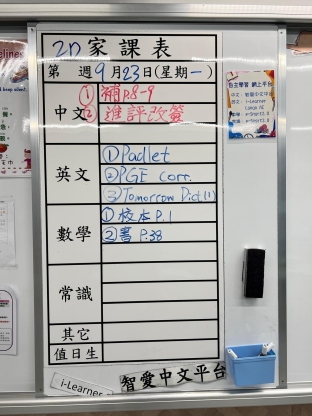 2D 家課表
第 週 9 月 23 日(星期 一)
中文
① 補 P.8-9
② 進評改簽
英文
① Padlet
② PGF corr.
③ Tomorrow Dict (1)
數學
① 校本 P.1
② 書 P.38
常識
其它
值日生
i-Learner
智愛中文平台
自主學習 網上平台